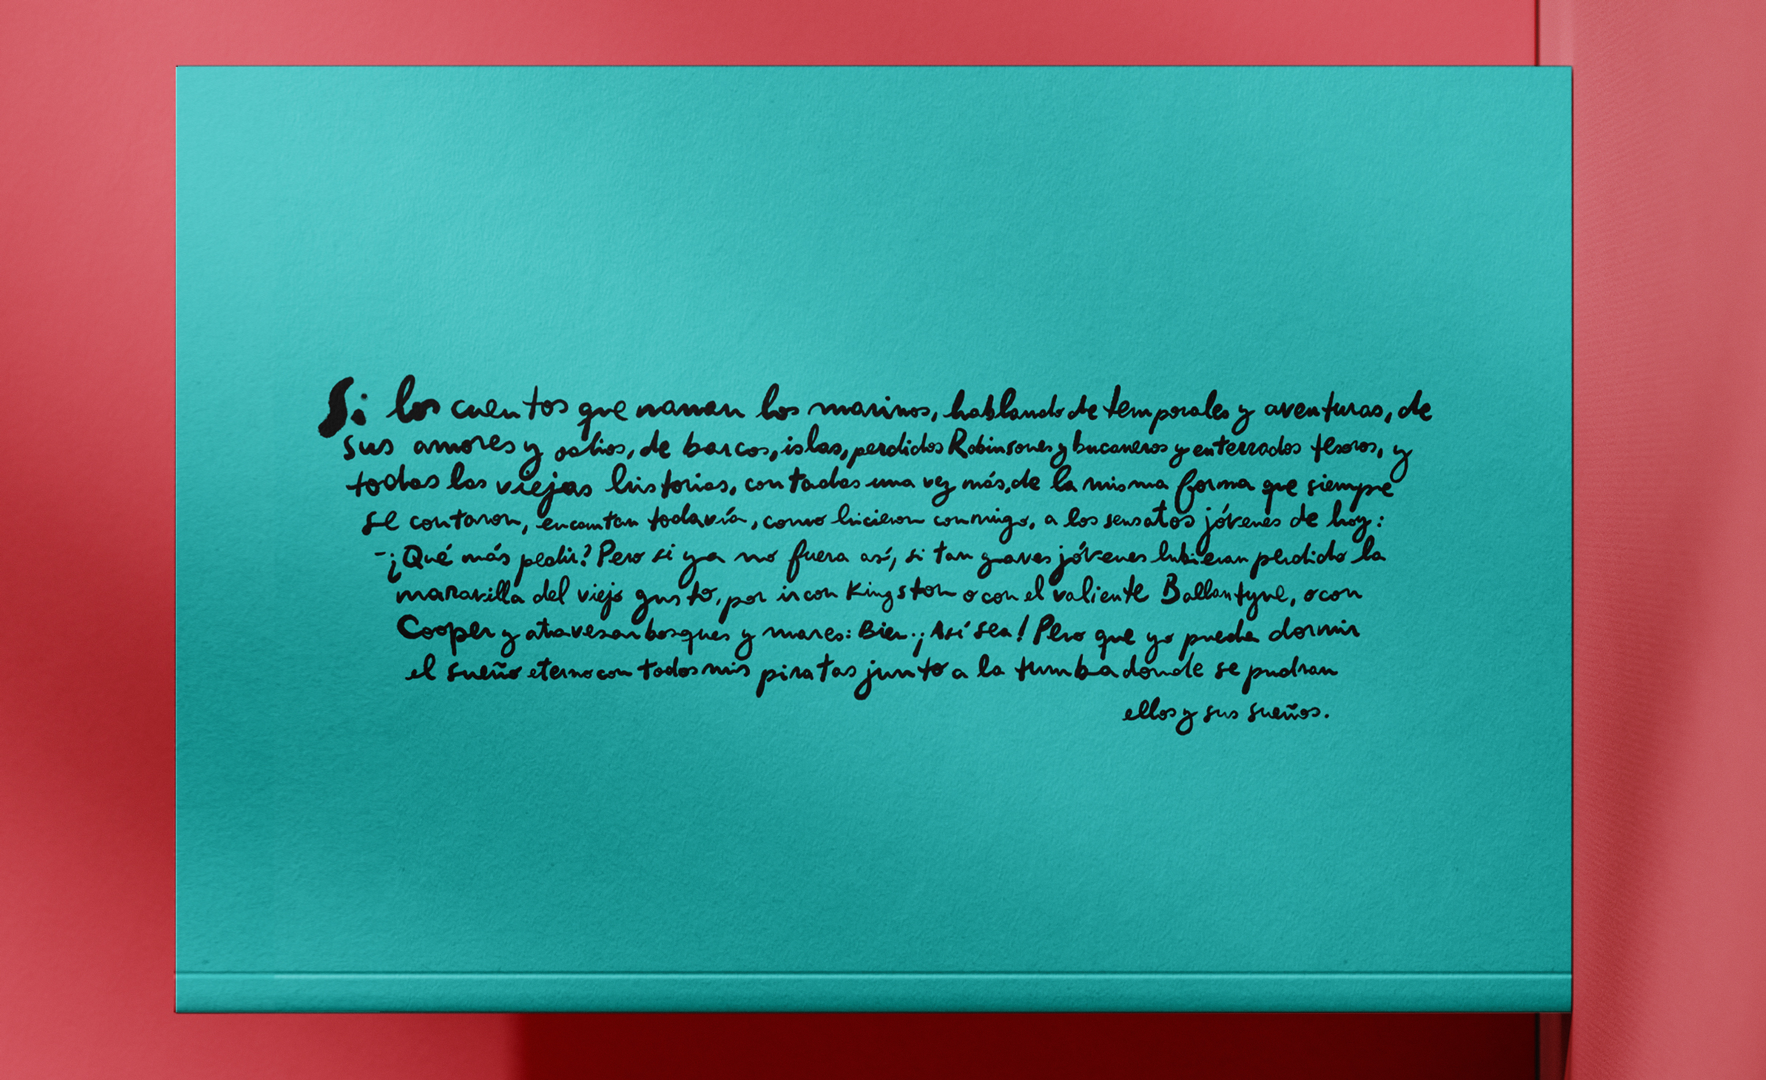 Si los cuentos que narran los marinos, hablando de temporales y aventuras, de
sus amores y odios, de barcos, islas, perdidos Robinsones y bucaneros y enterrados tesoros, y
todas las viejas historias, contadas una vez más, de la misma forma que siempre
se contaron, encantan todavía, como hicieron conmigo, a los sensatos jóvenes de hoy:
-¡Qué más pedir? Pero si ya no fuera así, si tan graves jóvenes hubieran perdido la
maravilla del viejo gusto, por ir con Kingston o con el valiente Ballantyne, o con
Cooper y atravesar bosques y mares: Bien. ¡Así sea! Pero que yo pueda dormir
el sueño eterno con todos mis piratas junto a la tumba donde se pudran
ellos y sus sueños.